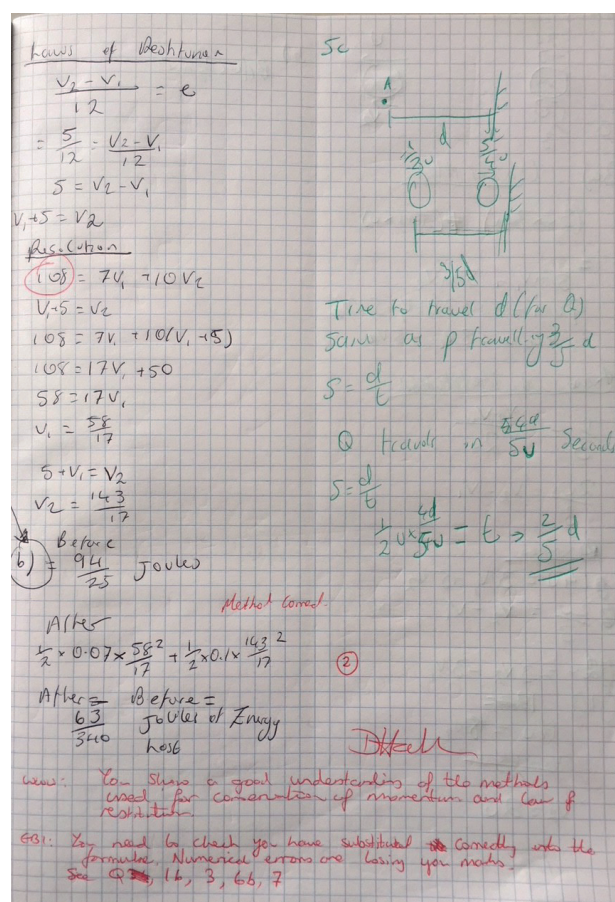 Laws of Restitution
V₂ - V₁ / 12 = e
= 5/12 = V₂ - V₁ / 12
5 = V₂ - V₁
V₁ + 5 = V₂
Resolution
108 = 7V₁ + 10V₂
V₁ + 5 = V₂
108 = 7V₁ + 10(V₁ + 5)
108 = 17V₁ + 50
58 = 17V₁
V₁ = 58/17
5 + V₁ = V₂
V₂ = 143/17
Before
b) = 94/25 Joules
Method Correct.
After
1/2 × 0.07 × 58²/17 + 1/2 × 0.1 × 143²/17
2
After = Before =
63/340 Joules of Energy
lost
5c
A
d
1/2 u 5/4 u
3/5 d
Time to travel d (for Q)
same as P travelling d
S = d/t
Q travels in 4d/5u Seconds
S = d/t
1/2 u × 4d/5u = t → 2/5 d
WWW: You show a good understanding of the methods
used for conservation of momentum and law of
restitution.
EBI: You need to check you have substituted correctly into the
formulae. Numerical errors are losing you marks.
See Q 1b, 3, 6b, 7